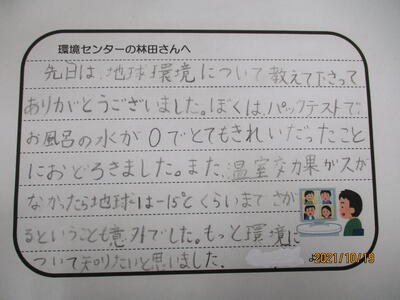 環境センターの林田さんへ
先日は、地球環境について教えて下さって
ありがとうございました。ぼくは、パックテストで、
お風呂の水が0でとてもきれいだったこと
におどろきました。また、温室効果ガスが
なかったら地球は-15°とくらいまでさが
るということも意外でした。もっと環境に
ついて知りたいと思いました。
2021/10/19